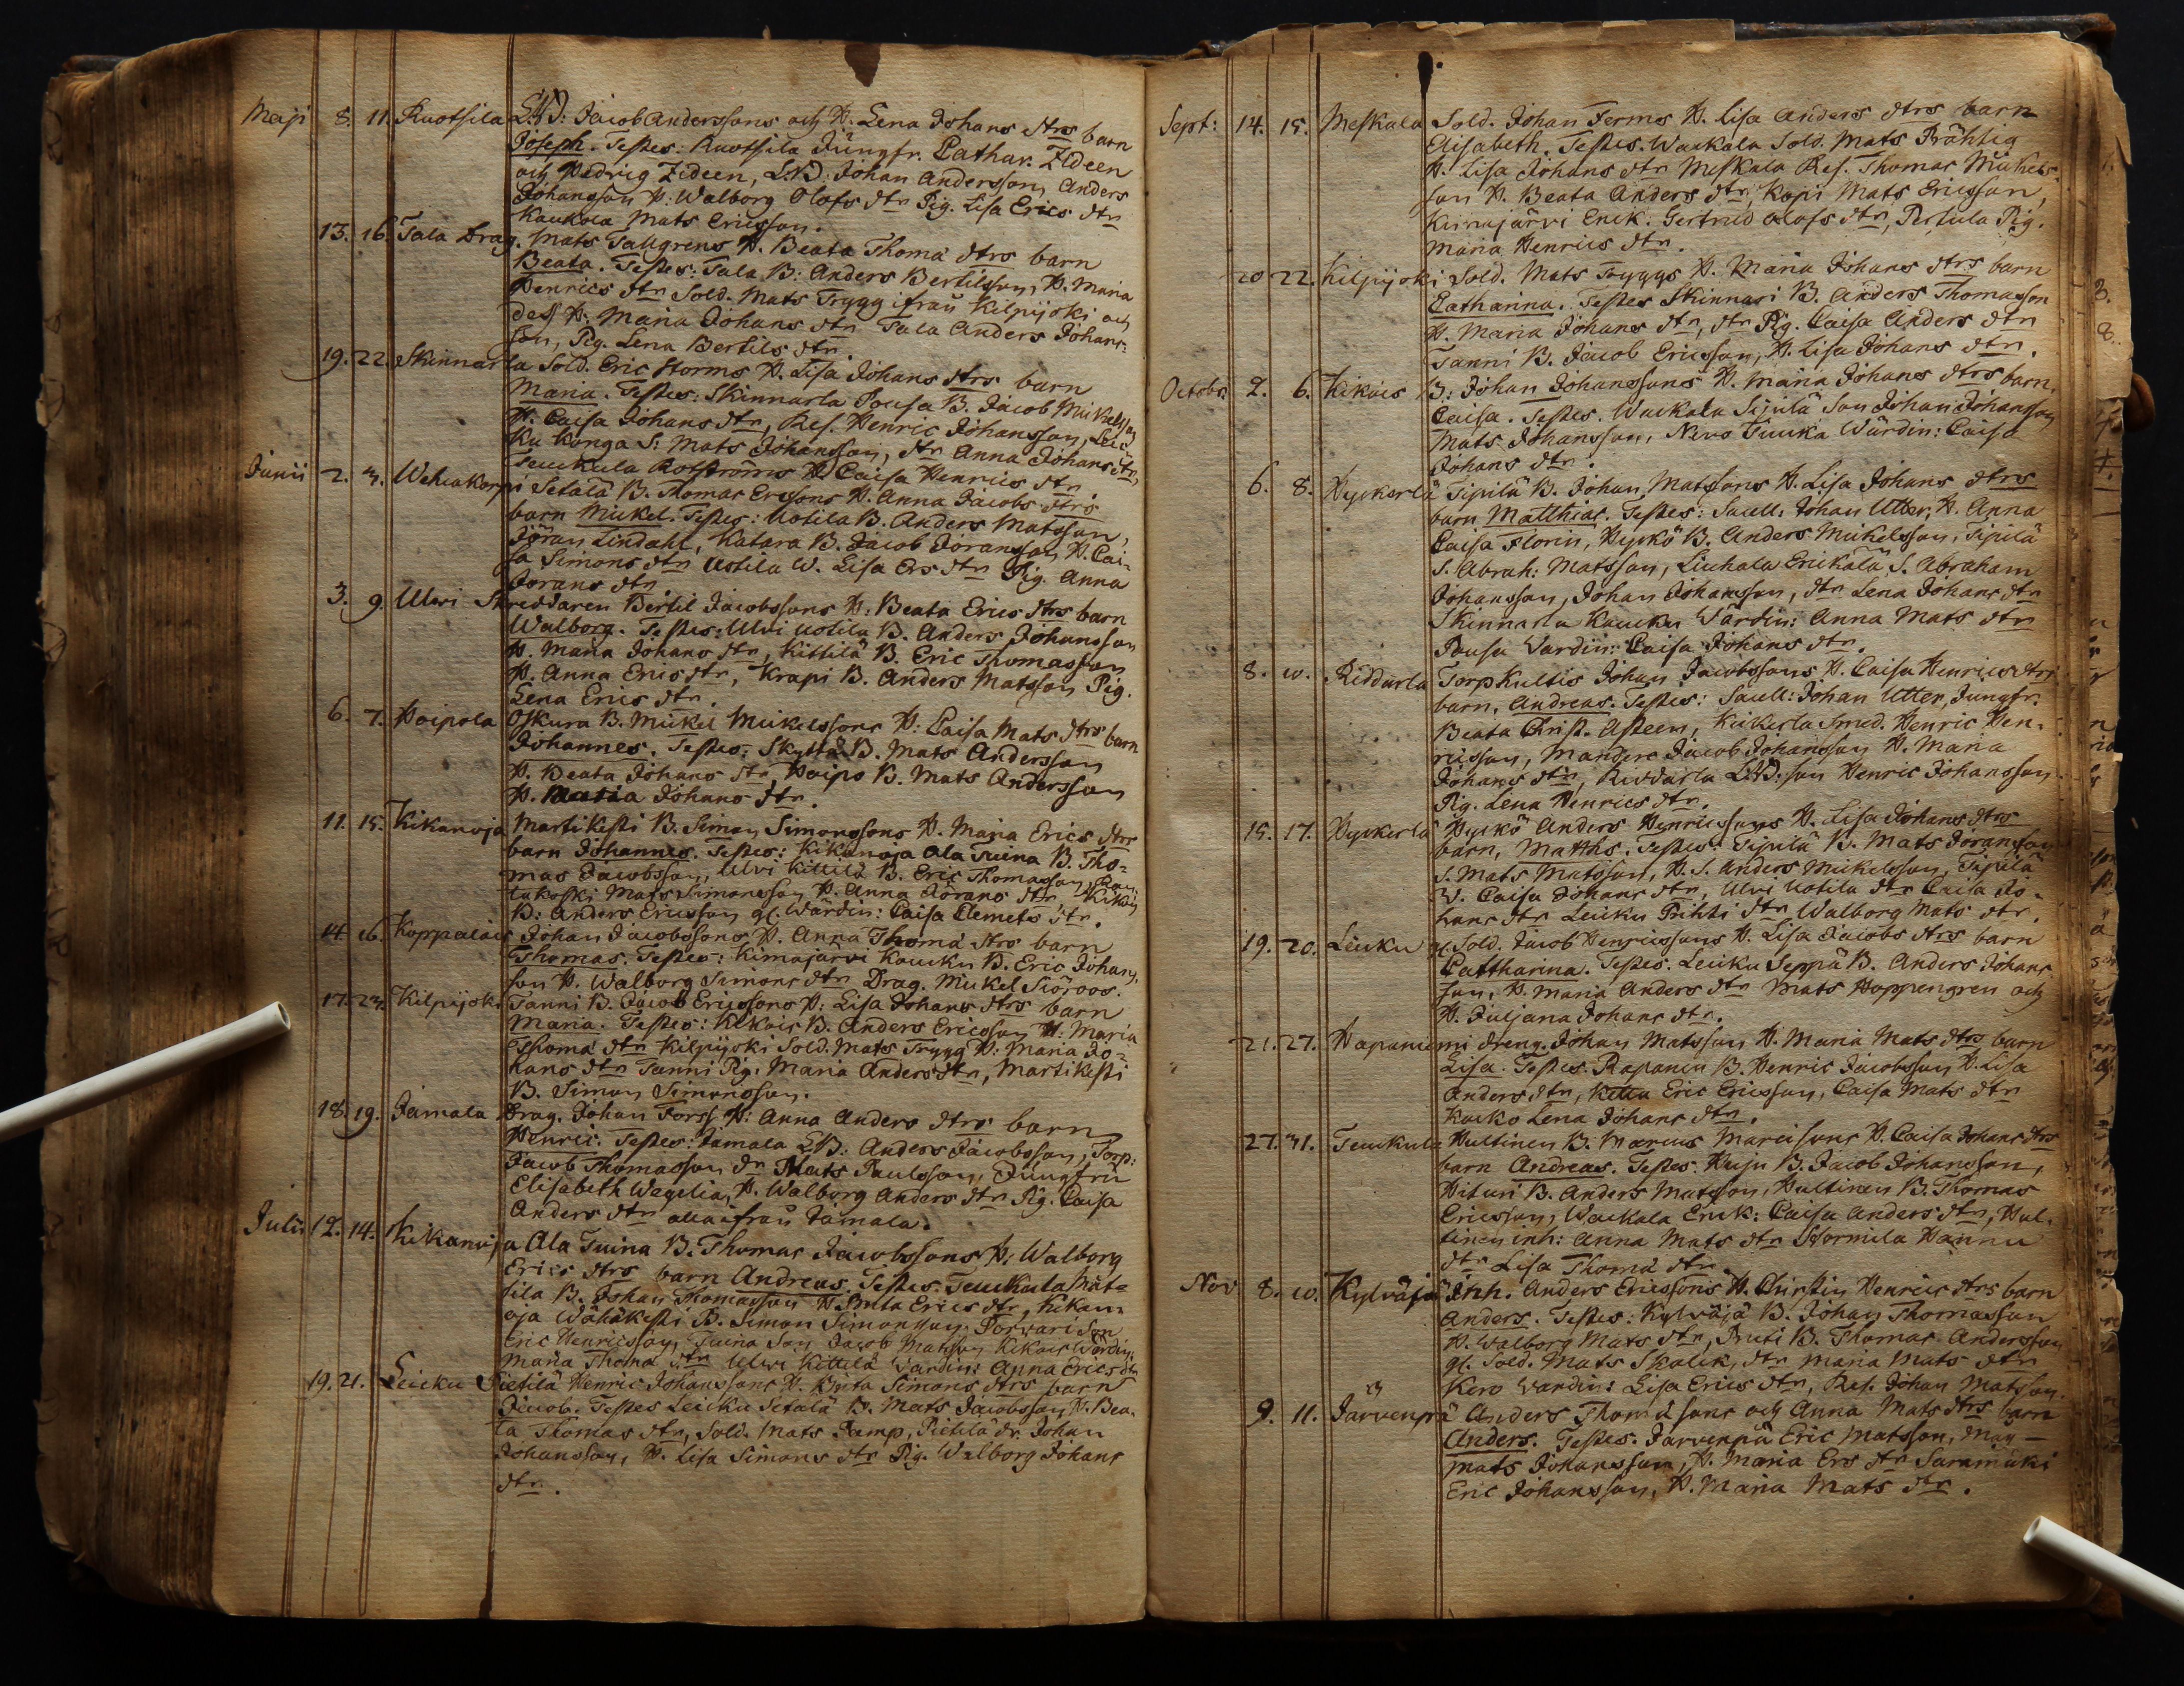 Maji 8. 11. Ruotsila L.B: Jacob Anderssons och H. Lena Johans dtrs barn
Joseph. Testes: Ruotsila Jüngfr. Cathar. Zideen
och Hedvig Zideen, L.B: Johan Andersson, Anders
Johansson H: Walborg Olofs dtr Pig. Lisa Erics dtr
Kaukola Mats Ericsson.
13. 16. Tala Drag. Mats Tallgrens H. Beata Thoma dtrs barn
Beata. Testes: Tala B: Anders Bertilsson, H. Maria
Henrics dtr Sold. Mats Trygg ifrån Kilpijoki och
dess H: Maria Johans dtr Tala Anders Johans-
son, Pig. Lena Bertils dtr.
19. 22. Skinnarla Sold. Eric Storms H. Lisa Johans dtrs barn
Maria. Testes: Skinnarla Pousa B. Jacob Mickelsson
H. Caisa Johans dtr, Res. Henric Johansson, Lei-
ku Konga S: Mats Johansson, dtr Anna Johans dtr,
Teukula Rotströms H. Caisa Henrics dtr
Junii 2. 4. Wehakorpi Setälä B. Thomas Ericsons H. Anna Jacobs dtrs
barn Mickel. Testes: Uotila B. Anders Matsson,
Jöran Lindahl, Katara B. Jacob Joransson H. Cai-
sa Simons dtr Uotila W. Lisa Ers dtr Pig. Anna
Jörans dtr
3. 9. Ulvi Skreddaren Bertil Jacobssons H. Beata Erics dtrs barn
Walborg. Testes: Ulvi Uotila B. Anders Johansson
H. Maria Johans dtr, Kittilä B. Eric Thomasson
H. Anna Erics dtr, Krapi B. Anders Matsson Pig.
Lena Erics dtr.
6. 7. Hoipola Oskura B. Mickel Mickelssons H: Caisa Mats dtrs barn
Johannes. Testes: Skyttä B. Mats Andersson
H. Beata Johans dtr, Hoipo B. Mats Andersson
H. Maria Johans dtr.
11. 15. Kikanoja Martikesti B. Simon Simonssons H. Maja Erics dtrs
barn Johannes. Testes: Kikanoja Ala Tuina B. Tho-
mas Jacobsson, Ulvi Kittilä B. Eric Thomasson
lakoski Mats Simonsson H. Anna Jörans dtr, Kikois
B: Anders Ericsson gl. Wärdin: Caisa Clemets dtr.
14. 16. Koppalais Johan Jacobssons H. Anna Thoma dtrs barn
Thomas. Testes: Kimajärvi Kaucku B. Eric Johans-
son H. Walborg Simons dtr Drag. Mickel Siöroos.
17. 23. Kilpijoki Tanni B. Jacob Ericssons H: Lisa Johans dtrs barn
Maria. Testes: Kikois B. Anders Ericsson H: Maria
Thoma dtr Kilpijoki Sold. Mats Trygg H: Maria Jo-
hans dtr Tanni Pig. Maria Anders dtr, Martikesti
B. Simon Simonsson.
18. 19. Jamala Drag. Johan Forss H: Anna Anders dtrs barn
Henric. Testes: Jamala L.B: Anders Jacobsson, Torp:
Jacob Thomasson dr Mats Paulsson, Jungfru
Elisabeth Wegelia, H. Walborg Anders dtr Pig. Caisa
Anders dtr alla ifrån Jamala.
Julii 12. 14. Kikanoja Ala Tuina B. Thomas Jacobssons H: Walborg
Erics dtrs barn Andreas. Testes: Teukula Mat-
tila B. Johan Thomasson H. Brita Erics dtr, Kikan-
oja Wähäkesti B. Simon Simonsson. Porvari Son
Eric Henricsson, Tuina Son Jacob Matsson Kikois Wärdin:
Maria Thoma dtr Ulvi Kittilä Wärdin: Anna Erics dtr
19. 21. Leicku Pietilä Henric Johanssons H. Brita Simons dtrs barn
Jacob. Testes Leicku Setälä B. Mats Jacobsson, H. Bea-
ta Thomas dtr, Sold. Mats Ramp, Pietilä dr. Johan
Johansson, H. Lisa Simons dtr Pig. Walborg Johans
dtr.
Sept: 14. 15. Meskala Sold. Johan Ferms H. Lisa Anders dtrs barn
Elisabeth. Testes. Wackala Sold. Mats Prähtig
H. Lisa Johans dtr Meskala Res. Thomas Mickels-
son H. Beata Anders dtr, Kopi Mats Ericsson,
Kirnajärvi Enck. Gertrud Olofs dtr, Pertula Pig.
Maria Henrics dtr.
20 22. Kilpijoki Sold. Mats Tryggs H. Maria Johans dtrs barn
Catharina. Testes Skinnari B. Anders Thomasson
H. Maria Johans dtr, dtr Pig. Caisa Anders dtr
Tanni B. Jacob Ericsson, H. Lisa Johans dtr.
Octobr. 2. 6. Kikois B: Johan Johanssons H. Maria Johans dtrs barn,
Caisa. Testes. Wackala Sipilä Son Johan Johansson
Mats Johansson, Nero Tuuka Wärdin: Caisa
Johans dtr.
6. 8. Hyckerlä Sipilä B. Johan Matssons H. Lisa Johans dtrs
barn Matthias. Testes: Saell: Johan Utter, H. Anna
Caisa Florin, Hyckö B. Anders Mickelsson, Sipilä
S. Abrah: Matsson, Liuhala Erickälä S. Abraham
Johansson, Johan Johansson, dtr Lena Johans dtr
Skinnarla Kaucku Wärdin: Anna Mats dtr
Pousa Wardin: Caisa Johans dtr.
8. 10. Riddarla Torp Kultis Johan Jacobssons H. Caisa Henrics dtrs
barn, Andreas. Testes: Saell: Johan Utter, Jungfr.
Beata Christ. Asteen, Kickerla Smed. Henric Hen-
ricsson, Mandere Jacob Johansson H. Maria
Johans dtr, Riddarla L.B: son Henric Johansson
Pig. Lena Henrics dtr.
15. 17. Hyckerlä Hyckö Anders Henricssons H. Lisa Johans dtrs
barn, Matths. Testes: Sipilä B. Mats Joransson
S. Mats Matsson, H. S. Anders Mickelsson, Sipilä
W. Caisa Johans dtr, Ulvi Uotila dtr Caisa Jo-
hans dtr Leicku Prihti dtr Walborg Mats dtr.
19. 20. Leicku gl. Sold. Jacob Henricssons H. Lisa Jacobs dtrs barn
Cattharina. Testes. Leicku Seppä B. Anders Johans
son, H. Maria Anders dtr Mats Hoppengren och
H. Juljana Johans dtr.
21. 27. Hapaniemi dreng. Johan Matsson H. Maria Mats dtrs barn
Lisa. Testes. Rapanen B. Henric Jacobsson H. Lisa
Anders dtr, Eric Ericsson, Caisa Mats dtr
Kacko Lena Johans dtr.
27. 31. Teuckula Hultinen B. Marcus Marcisons H. Caisa Johans dtrs
barn Andreas. Testes. Heiju B. Jacob Johansson,
Hituri B. Anders Matsson, Hultinen B. Thomas
Ericsson, Wackala Enck: Caisa Anders dtr, Hul-
tinen inh: Anna Mats dtr Stormila Hannu
dtr Lisa Thoma dtr.
Nov 8. 10. Kylväjä Inh. Anders Ericssons H. Christin Henrics dtrs barn
Anders. Testes: Kylväjä B. Johan Thomasson
H. Walborg Mats dtr, Ruti B. Thomas Andersson
gl. Sold. Mats Skalk, dtr Maria Mats dtr
Kero Wardin: Lisa Erics dtr, Res. Johan Matsson.
9. 11. Jarvenpä Anders Thomasons och Anna Mats dtrs barn
Anders. Testes. Jarvenpä Eric Matsson, Mag
Mats Johansson, H. Maria Ers dtr Saramäki
Eric Johansson, H. Maria Mats dtr.